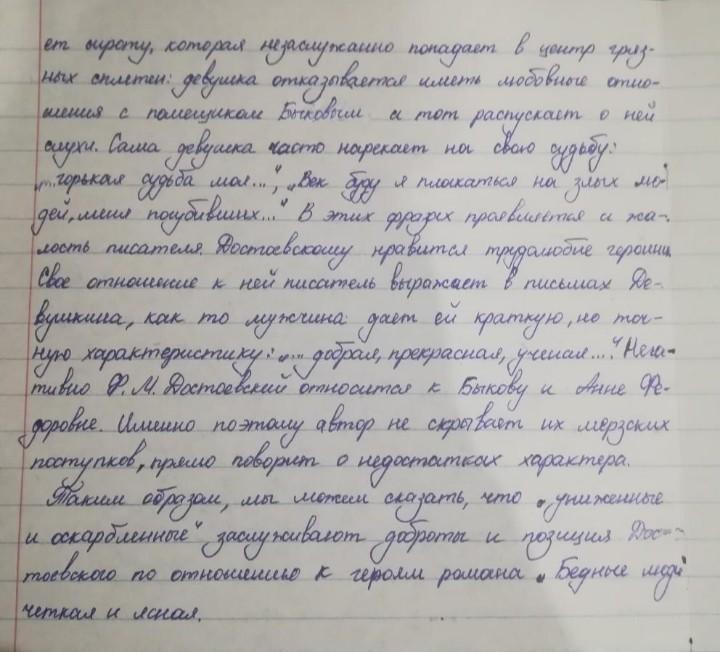 ет сироту, которая незаслужанно попадает в центр гряз-
ных сплетен: девушка отказывается иметь любовные отно-
шения с помещиком Быковым а тот распускает о ней
слухи. Сама девушка часто нарекает на свою судьбу:
„...горькая судьба моя...", „Век буду я плакаться на злых лю-
дей, меня погубивших..." В этих фразах проявляется и жа-
лость писателя. Достоевскому нравится трудолюбие героини
Свое отношение к ней писатель выражает в письмах Де-
вушкина, как то мужчина дает ей краткую, но точ-
ную характеристику: „... добрая, прекрасная, ученая...." Нега-
тивно Ф. М. Достоевский относится к Быкову и Анне Фе-
доровне. Именно поэтому автор не скрывает их мерзских
поступков, прямо говорит о недостатках характера.
Таким образом, мы можем сказать, что „униженные
и оскарбленные" заслуживают доброты и позиция Дос-
тоевского по отношению к героям романа „Бедные люди"
четкая и ясная.